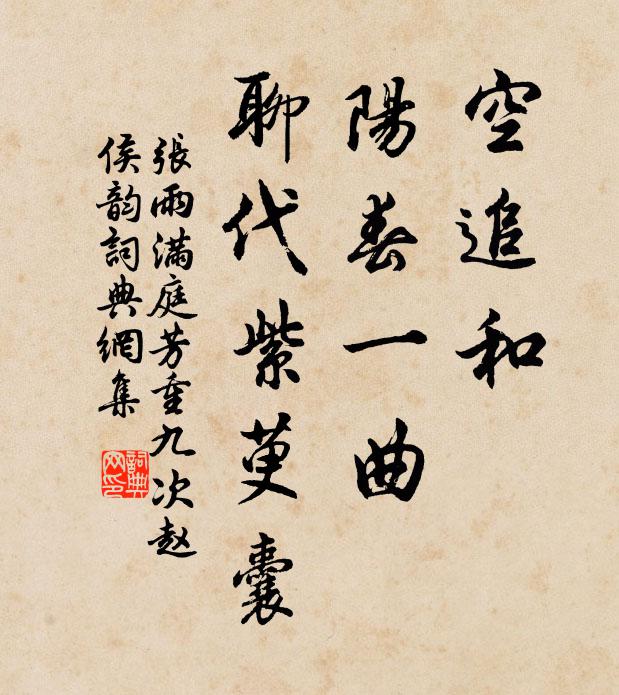 空追和
陽春一曲
聊代紫萸囊
張雨滿庭芳重九次赵
侯韵詞典網集
詞典网印